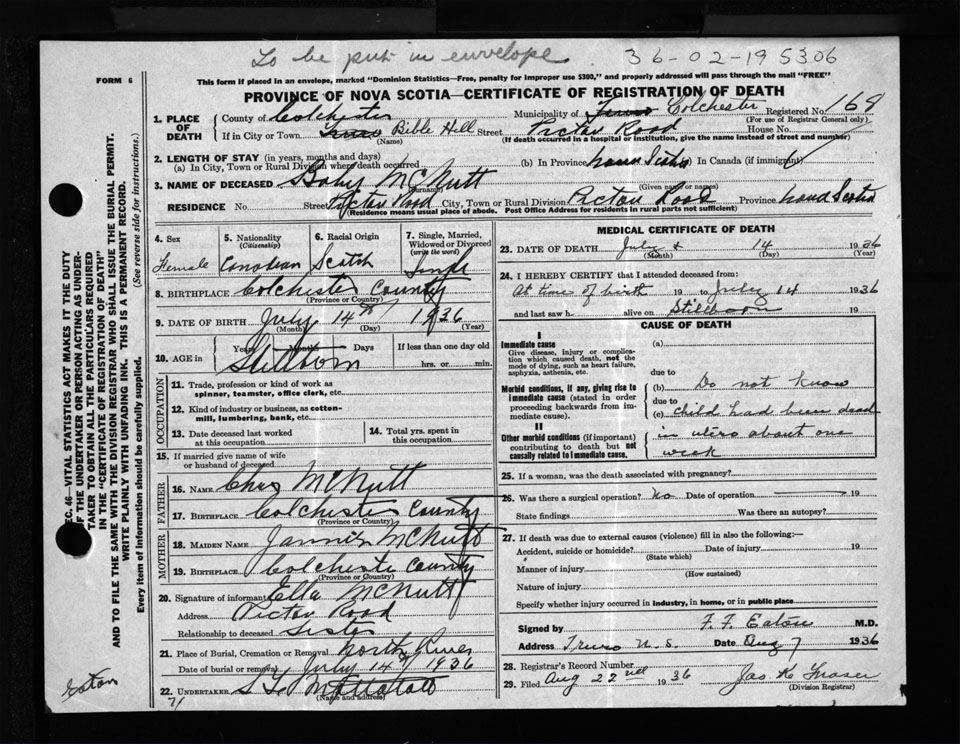 To be put in envelope 36-02-195306
FORM 6
This form if placed in an envelope, marked "Dominion Statistics—Free, penalty for improper use $300," and properly addressed will pass through the mail "FREE"
PROVINCE OF NOVA SCOTIA—CERTIFICATE OF REGISTRATION OF DEATH
1. PLACE OF DEATH
County of Colchester Municipality of Truro Colchester Registered No. 169
(For use of Registrar General only)
If in City or Town Truro Bible Hill Street Pictou Road House No.
(Name) (If death occurred in a hospital or institution, give the name instead of street and number)
2. LENGTH OF STAY (in years, months and days)
(a) In City, Town or Rural Division where death occurred (b) In Province Nova Scotia In Canada (if immigrant)
3. NAME OF DECEASED Baby McNutt
(Surname) (Given name or names)
RESIDENCE No. Street Pictou Road City, Town or Rural Division Pictou Road Province Nova Scotia
(Residence means usual place of abode. Post Office Address for residents in rural parts not sufficient)
4. Sex
Female
5. Nationality
(Citizenship)
Canadian
6. Racial Origin
Scotch
7. Single, Married, Widowed or Divorced
(write the word)
Single
8. BIRTHPLACE Colchester County
(Province or Country)
9. DATE OF BIRTH July 14th 1936
(Month) (Day) (Year)
10. AGE in Years Months Days If less than one day old
Stillborn hrs. or min.
OCCUPATION
11. Trade, profession or kind of work as spinner, teamster, office clerk, etc.
12. Kind of industry or business, as cotton-mill, lumbering, bank, etc.
13. Date deceased last worked at this occupation
14. Total yrs. spent in this occupation
15. If married give name of wife or husband of deceased
FATHER
16. NAME Chas McNutt
17. BIRTHPLACE Colchester County
(Province or Country)
MOTHER
18. MAIDEN NAME McNutt
19. BIRTHPLACE Colchester County
(Province or Country)
20. Signature of informant Ella McNutt
Address Pictou Road
Relationship to deceased Sister
21. Place of Burial, Cremation or Removal North River
Date of burial or removal July 14th 1936
22. UNDERTAKER
(Name and address)
71
MEDICAL CERTIFICATE OF DEATH
23. DATE OF DEATH July 14 1936
(Month) (Day) (Year)
24. I HEREBY CERTIFY that I attended deceased from:
At time of birth 19 to July 14 1936
and last saw h alive on Stillborn 19
CAUSE OF DEATH
I
Immediate cause
Give disease, injury or complication which caused death, not the mode of dying, such as heart failure, asphyxia, asthenia, etc.
(a)
due to
Morbid conditions, if any, giving rise to immediate cause (stated in order proceeding backwards from immediate cause).
(b) Do not know
due to
(c) child had been dead
II
Other morbid conditions (if important) contributing to death but not causally related to immediate cause.
in utero about one
week
25. If a woman, was the death associated with pregnancy?
26. Was there a surgical operation? No Date of operation 19
State findings Was there an autopsy?
27. If death was due to external causes (violence) fill in also the following:—
Accident, suicide or homicide? Date of injury 19
(State which)
Manner of injury
(How sustained)
Nature of injury
Specify whether injury occurred in industry, in home, or in public place
Signed by F. F. Eaton M.D.
Address Truro N.S. Date Aug 7 1936
28. Registrar's Record Number
29. Filed Aug 22nd 1936 Jas K Fraser
(Division Registrar)
SEC. 46—VITAL STATISTICS ACT MAKES IT THE DUTY
OF THE UNDERTAKER OR PERSON ACTING AS UNDER-
TAKER TO OBTAIN ALL THE PARTICULARS REQUIRED
IN THE "CERTIFICATE OF REGISTRATION OF DEATH"
AND TO FILE THE SAME WITH THE DIVISION REGISTRAR WHO SHALL ISSUE THE BURIAL PERMIT.
WRITE PLAINLY WITH UNFADING INK. THIS IS A PERMANENT RECORD.
Every item of information should be carefully supplied. (See reverse side for instructions.)
Eaton